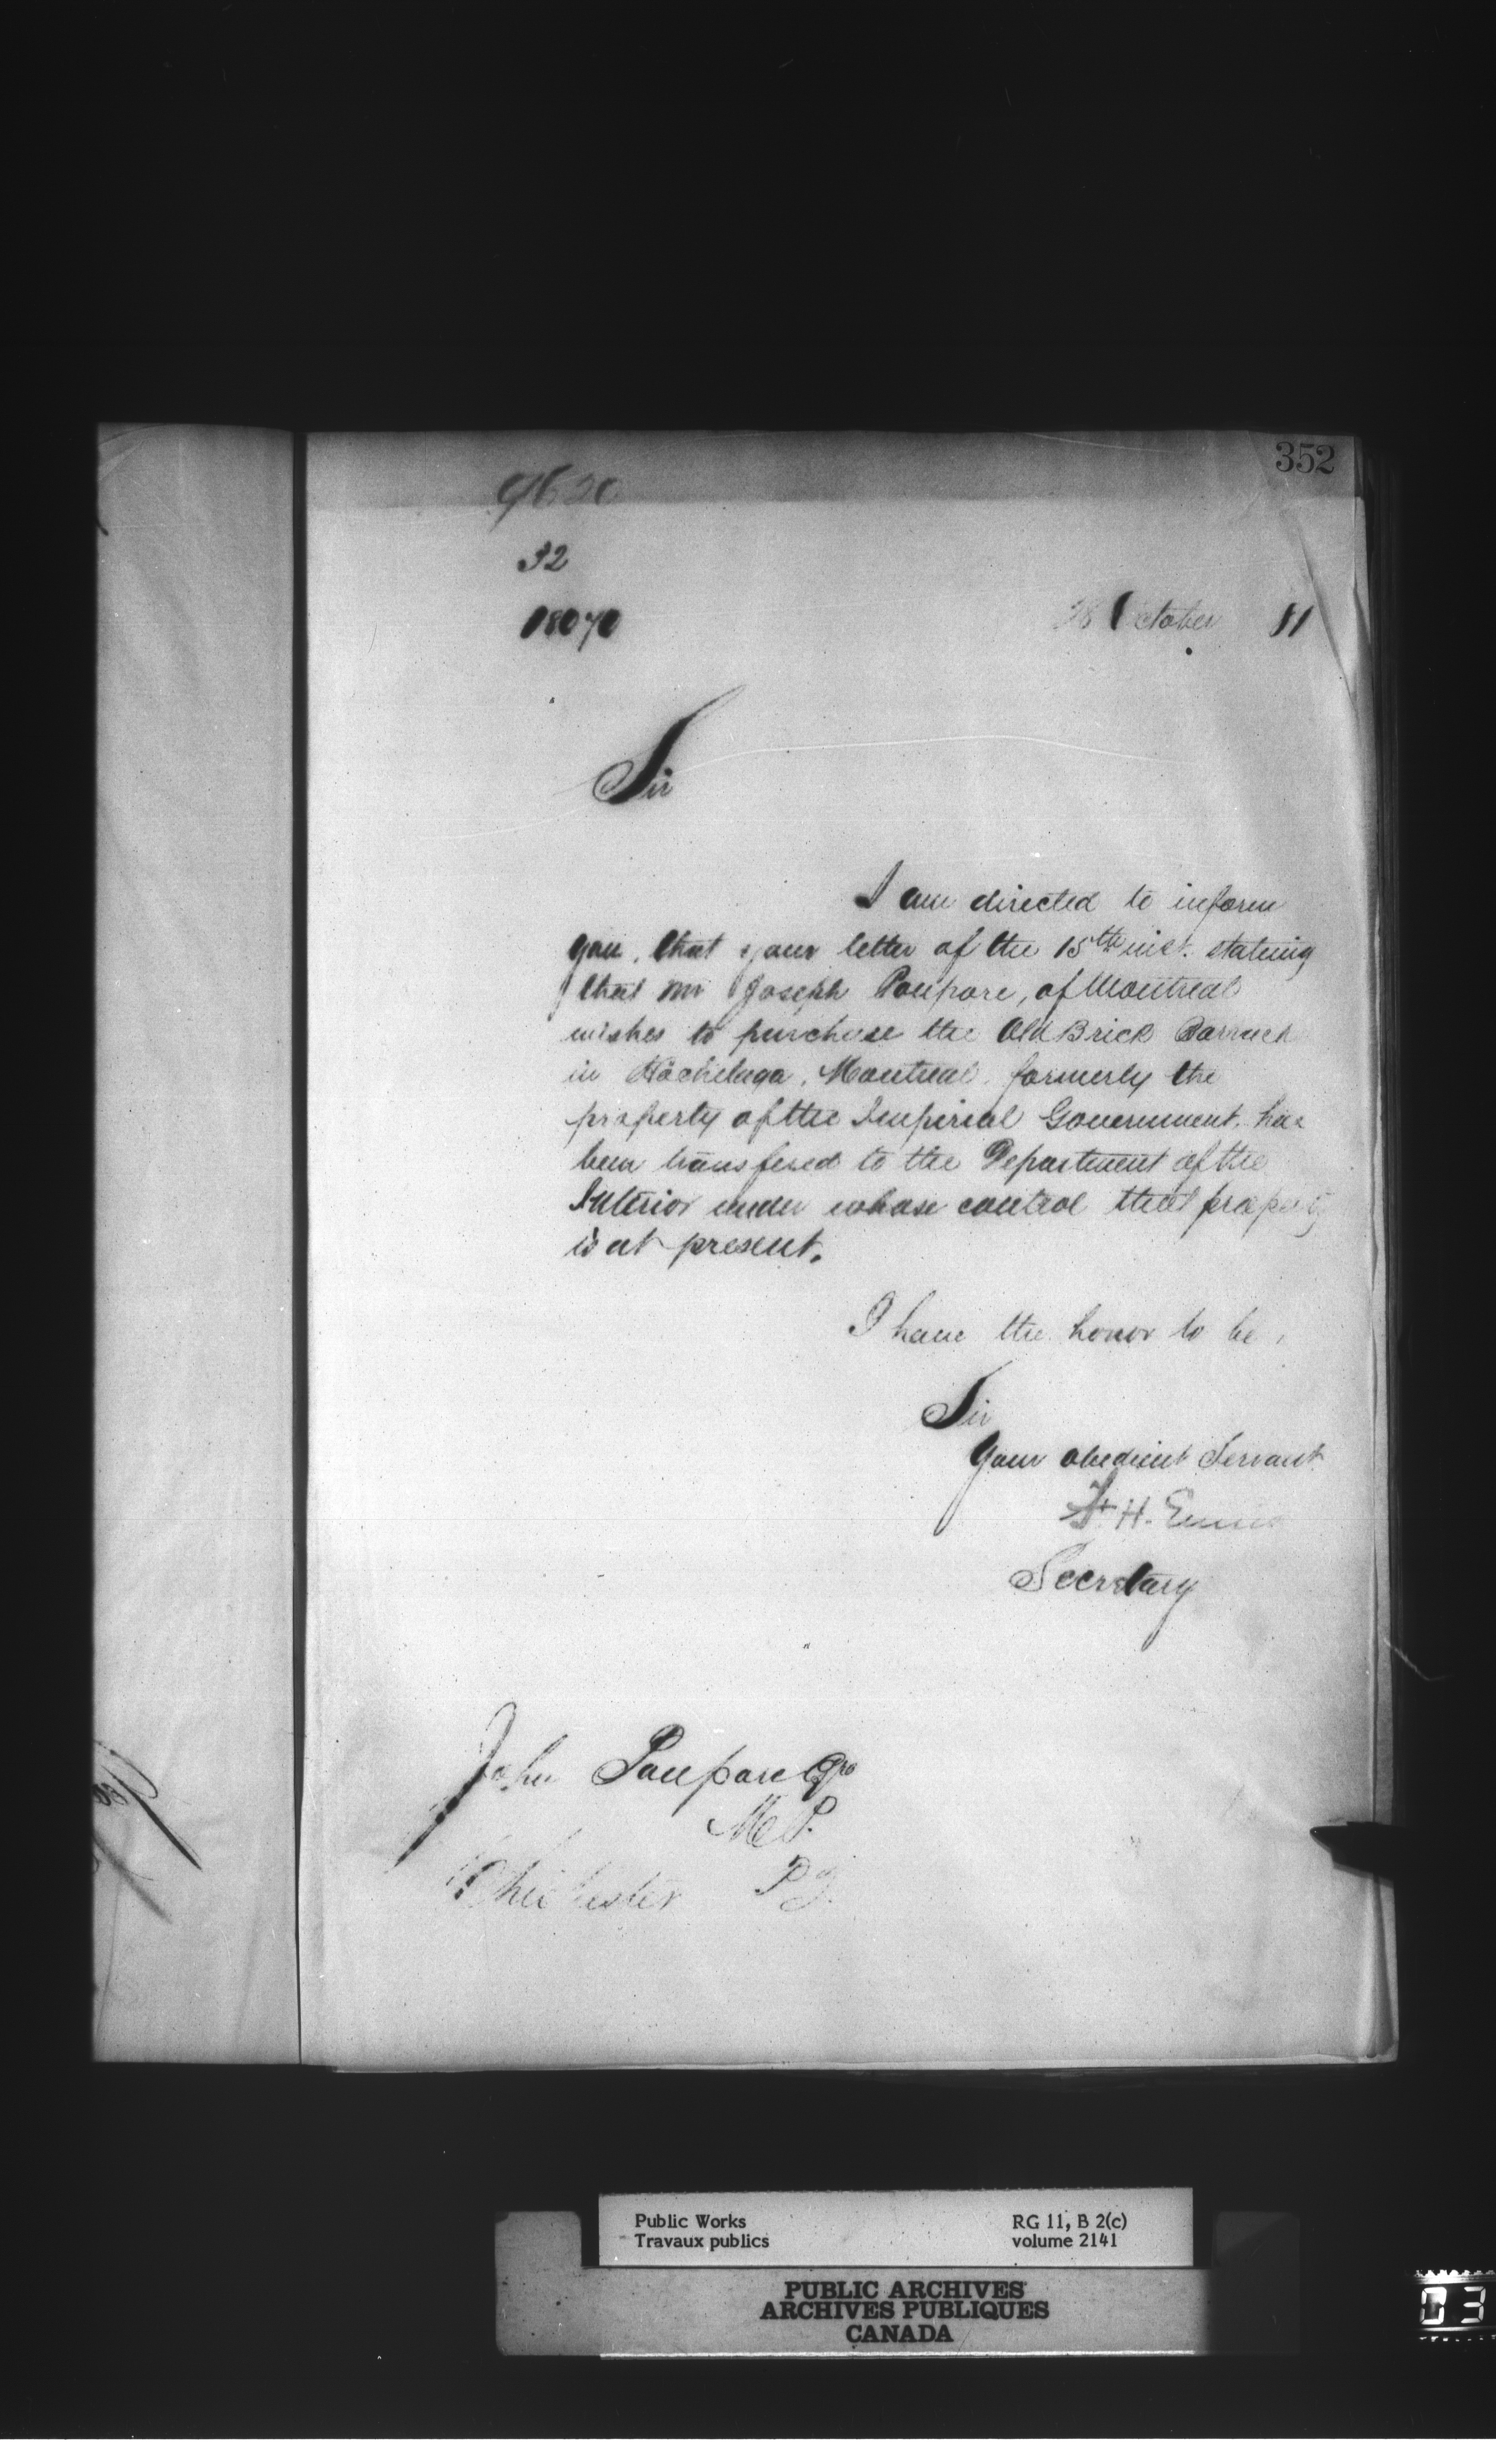 352
9620
32
18070
October 81
Sir
I am directed to inform
you, that your letter of the 15th inst. stating
that Mr Joseph Poupore, of Montreal
wishes to purchase the Old Brick Barrack
in Hochelaga, Montreal, formerly the
property of the Imperial Government, has
been transfered to the Department of the
Interior under whose control that property
is at present.
I have the honor to be,
Sir
Your obedient Servant
F. H. Ennis
Secretary
John Poupore Esqre
M.P.
Chichester P.Q.
Public Works
Travaux publics
RG 11, B 2(c)
volume 2141
PUBLIC ARCHIVES
ARCHIVES PUBLIQUES
CANADA
03